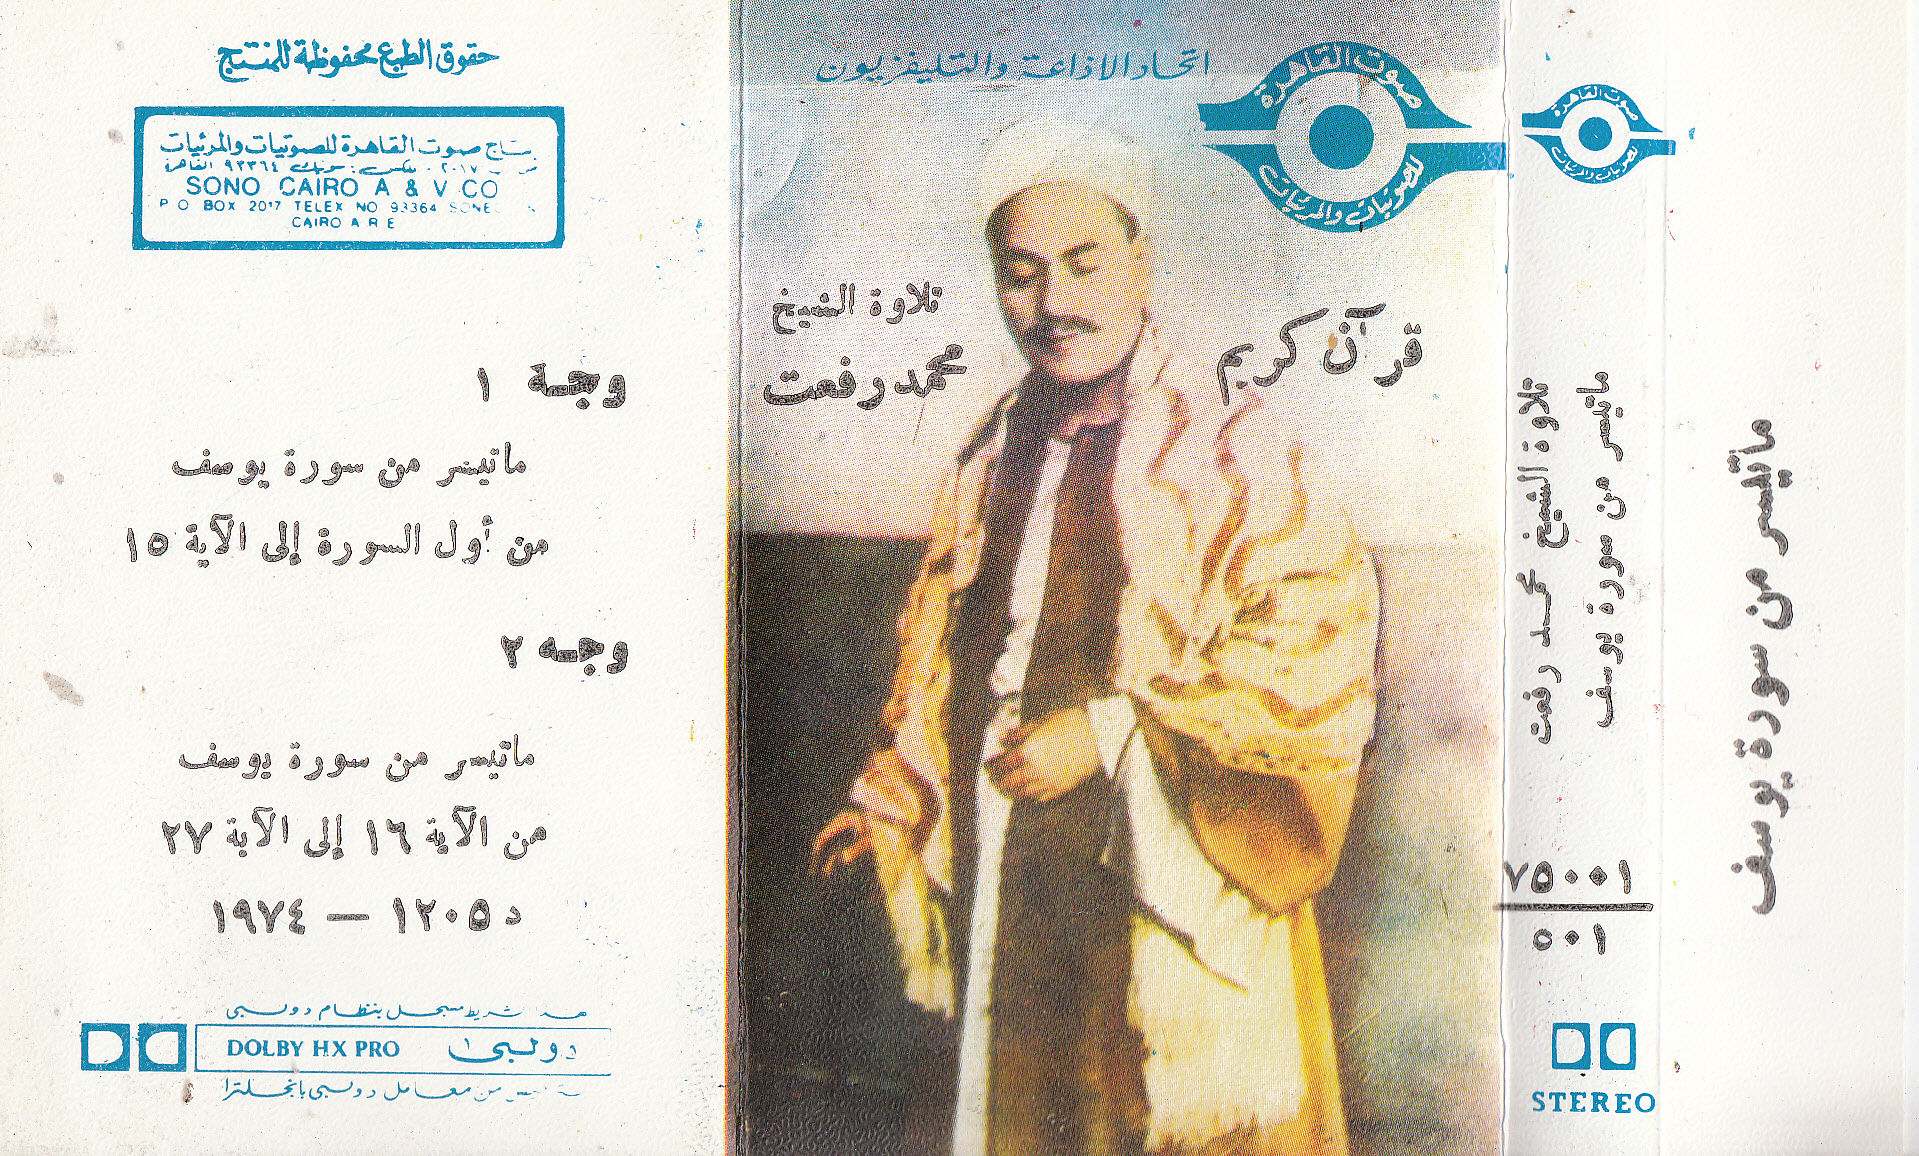 حقوق الطبع محفوظة للمنتج
صوت القاهرة للصوتيات والمرئيات
٢٠١٧ ٩٣٣٦٤ القاهرة
SONO CAIRO A & V CO
P O BOX 2017 TELEX NO 93364
CAIRO A R E
وجـة ١
ماتيسر من سورة يوسف
من أول السورة إلى الآية ١٥
وجـه ٢
ماتيسر من سورة يوسف
من الآية ١٦ إلى الآية ٢٧
د ١٢٠٥ – ١٩٧٤
شريط مسجل بنظام دولبى
DOLBY HX PRO دولبى
من معامل دولبى بانجلترا
اتحاد الاذاعة والتليفزيون
صوت القاهرة
للصوتيات والمرئيات
قرآن كريم
تلاوة الشيخ
محمد رفعت
صوت القاهرة
للصوتيات والمرئيات
تلاوة الشيخ محمد رفعت
ماتيسر من سورة يوسف
٧٥٠٠١
٥٠١
STEREO
ماتيسر من سورة يوسف